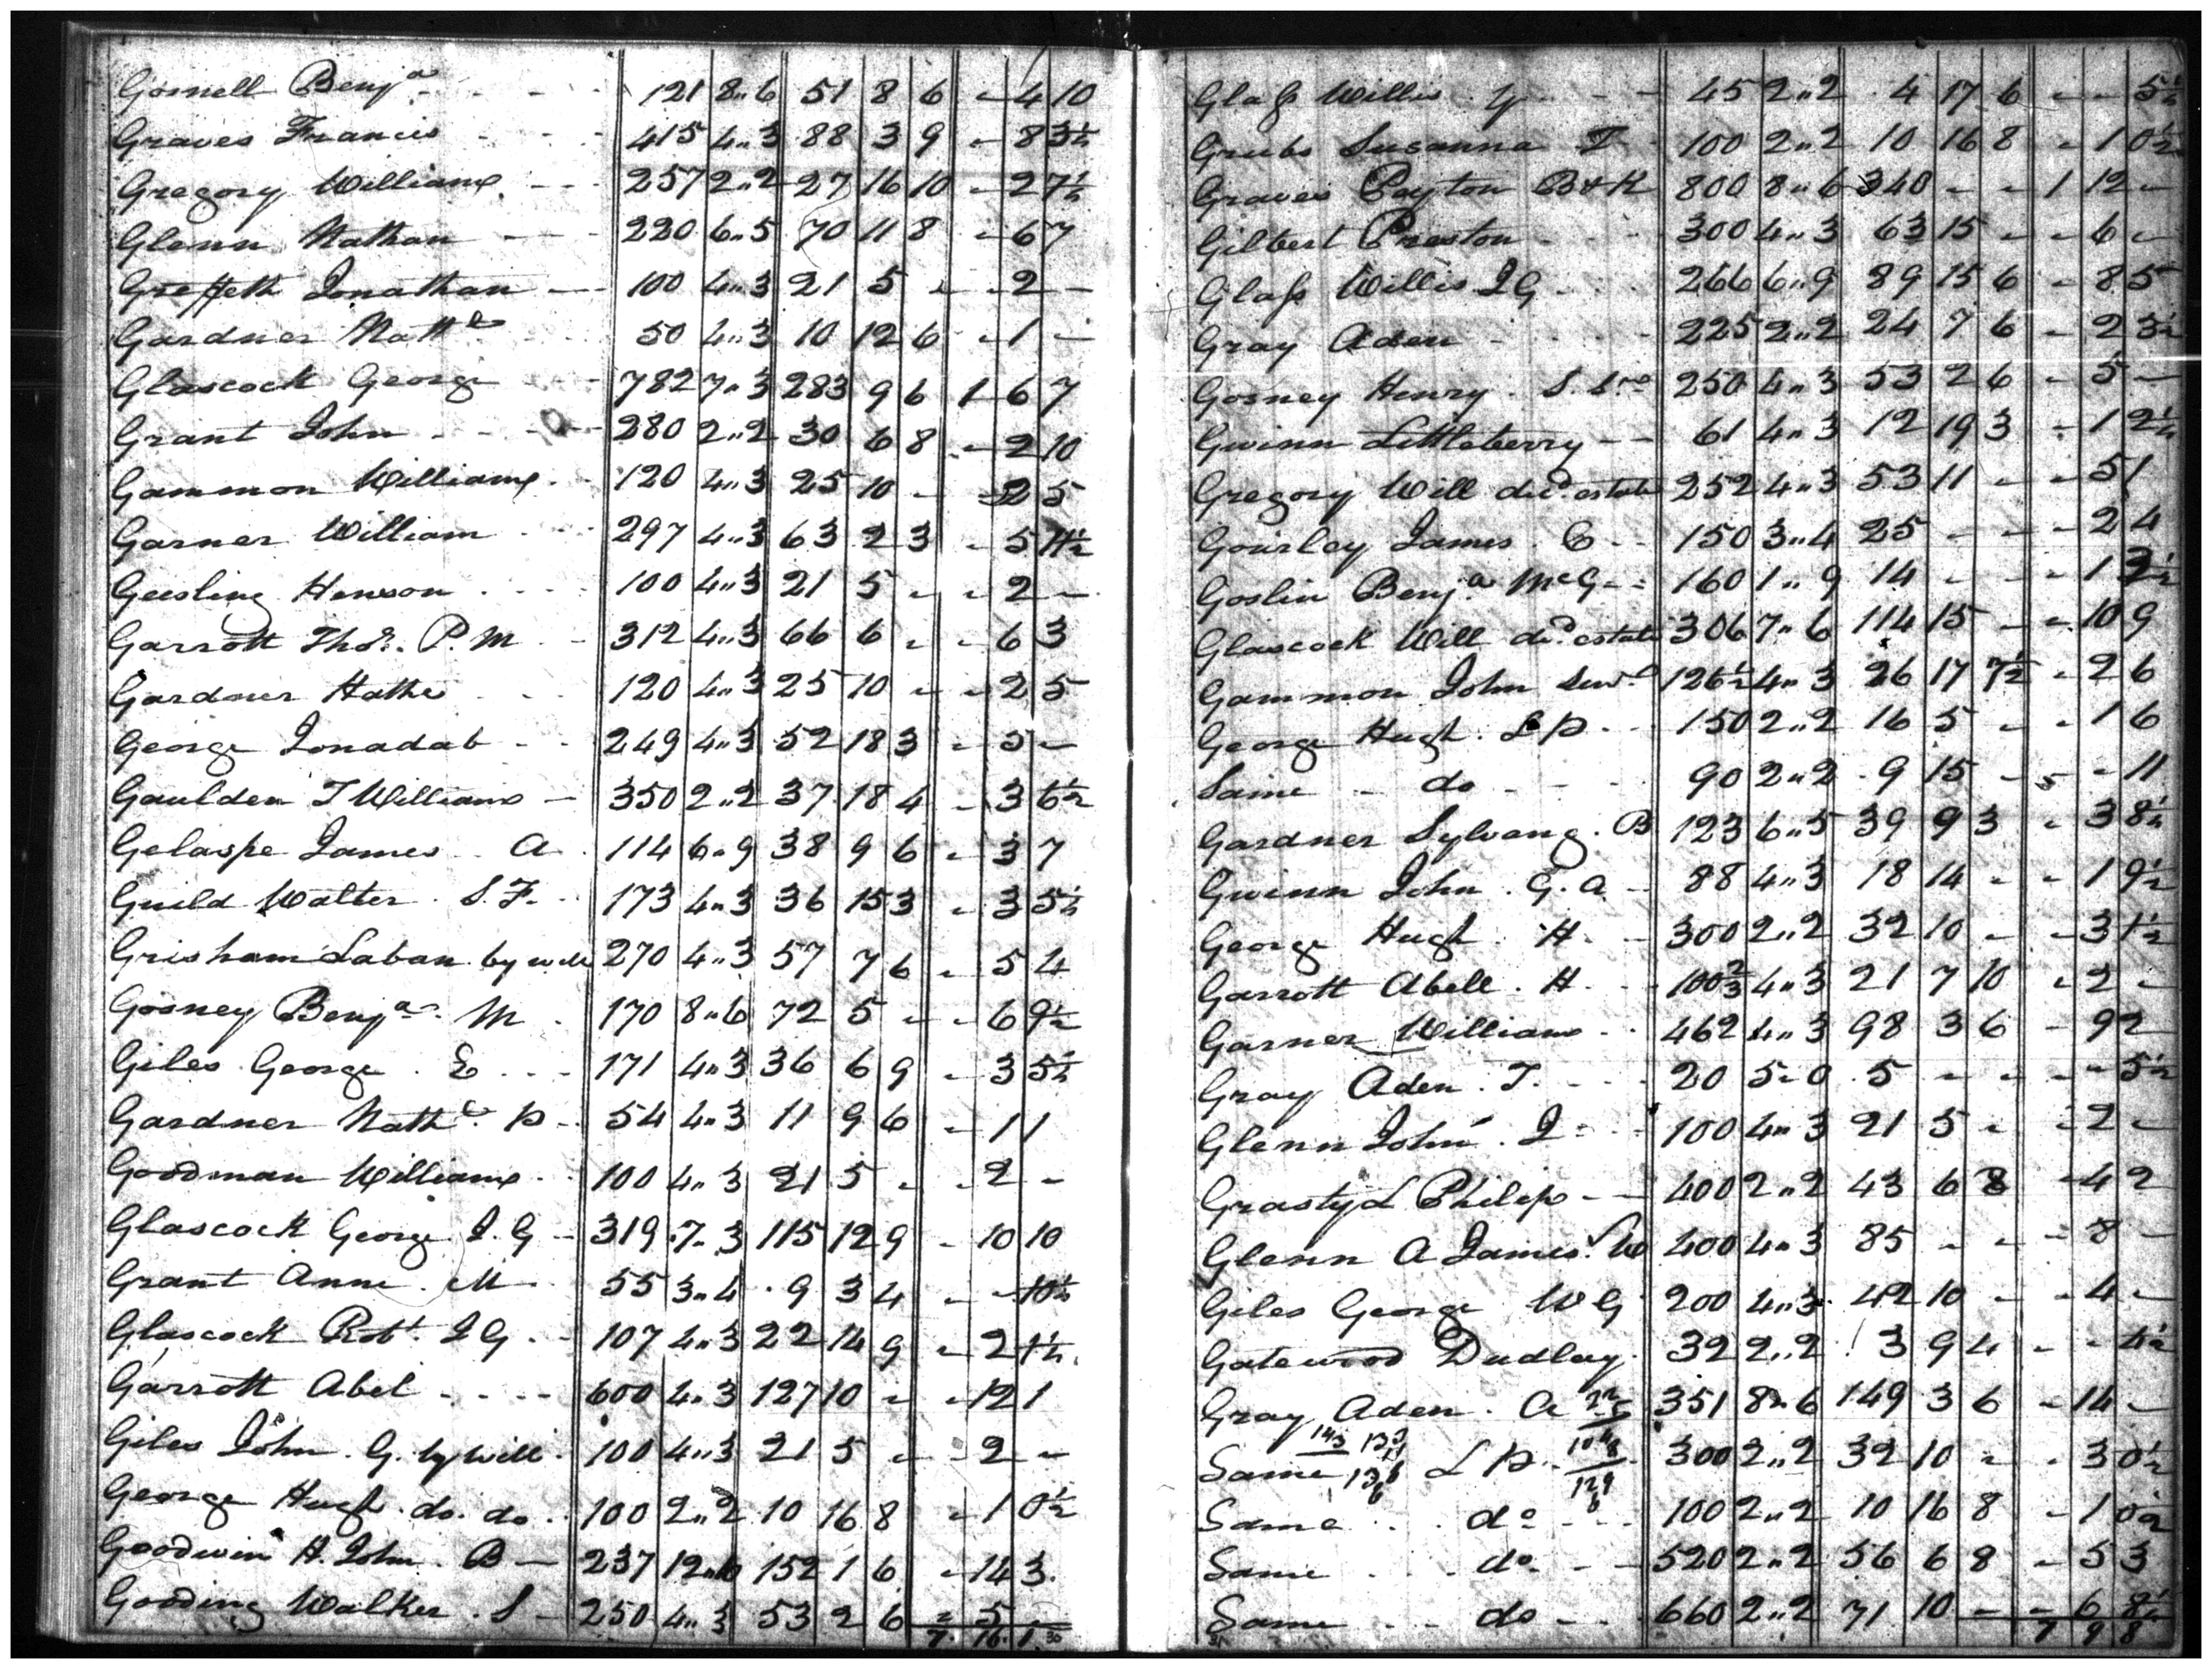 Gosnell Benja - - - 121 8"6 51 8 6 - 4 10
Graves Francis - - - 415 4"3 88 3 9 - 8 3½
Gregory William - - 257 2"2 27 16 10 - 2 7½
Glenn Nathan - - 220 6"5 70 11 8 - 6 7
Greffeth Jonathan - - 100 4"3 21 5 - - 2 -
Gardner Nathl - - - 50 4"3 10 12 6 - 1 -
Glascock George - - 782 7"3 283 9 6 1 6 7
Grant John - - - - 280 2"2 30 6 8 - 2 10
Gammon William - 120 4"3 25 10 - - 2 5
Garner William - - 297 4"3 63 2 3 - 5 11½
Geesling Henson - - - 100 4"3 21 5 - - 2 -
Garrott Thos. P. M - 312 4"3 66 6 - - 6 3
Gardner - - 120 4"3 25 10 - - 2 5
George Jonadab - - 249 4"3 52 18 3 - 5 -
Gaulden T William - 350 2"2 37 18 4 - 3 6½
Gelaspe James - A - 114 6"9 38 9 6 - 3 7
Guild Walter . S. F. - 173 4"3 36 15 3 - 3 5½
Grisham Laban by will 270 4"3 57 7 6 - 5 4
Gosney Benja . M - 170 8"6 72 5 - - 6 9½
Giles George . E - - - 171 4"3 36 6 9 - 3 5½
Gardner Nathl P - 54 4"3 11 9 6 - 1 1
Goodman William - 100 4"3 21 5 - - 2 -
Glascock George J. G - 319 7"3 115 12 9 - 10 10
Grant Anne . M - 55 3"4 9 3 4 - - 10½
Glascock Robt J G - 107 4"3 22 14 9 - 2 1½
Garrott Abel - - - - 600 4"3 127 10 - - 12 1
Giles John . G. by will - 100 4"3 21 5 - - 2 -
George Hugh . do. do. - 100 2"2 10 16 8 - 1 0½
Goodwin H. John . B - 237 152 1 6 - 14 3
Gooding Walker . S - 250 4"3 53 2 6 - 5 -
7 16 1 30
Glass Willis . - - 45 2"2 4 17 6 - - 5½
Grubs Susanna T 100 2"2 10 16 8 - 1 0½
Graves Payton B & K 800 8"6 340 - - 1 12 -
Gilbert Preston - - - 300 4"3 63 15 - - 6 -
Glass Willis J G - - 266 6"9 89 15 6 - 8 5
Gray Aden - - - - 225 2"2 24 7 6 - 2 3½
Gosney Henry . 250 4"3 53 2 6 - 5 -
Gwinn Littleberry - - 61 4"3 12 19 3 - 1 2½
Gregory Will decd estate 252 4"3 53 11 - - 5 1
Gourley James . C - - 150 3"4 25 - - - 2 4
Goslin Benja McG - - 160 1"9 14 - - - 1 3½
Glascock Will decd estate 306 7"6 114 15 - - 10 9
Gammon John 126½ 4"3 26 17 7½ - 2 6
George Hugh . L P. - - 150 2"2 16 5 - - 1 6
Same - do - - - 90 2"2 9 15 - - - 11
Gardner Sylvanus . B 123 6"5 39 9 3 - 3 8½
Gwinn John . G. A. - 88 4"3 18 14 - - 1 9½
George Hugh . H - - 300 2"2 32 10 - - 3 1½
Garrott Abell . H - - 100⅔ 4"3 21 7 10 - 2 -
Garner William - - 462 4"3 98 3 6 - 9 2
Gray Aden . T. - - - 20 5"0 5 - - - - 5½
Glenn John . J - - 100 4"3 21 5 - - 2 -
Grasty L Philip - - 400 2"2 43 6 8 - 4 2
Glenn A James W 400 4"3 85 - - - 8 -
Giles George W G 200 4"3 42 10 - - 4 -
Gatewood Dudley - 32 2"2 3 9 4 - - 4½
Gray Aden . A 351 8"6 149 3 6 - 14 -
Same L P. 300 2"2 32 10 - - 3 0½
Same - - do - - - 100 2"2 10 16 8 - 1 0½
Same - - do - - - 520 2"2 56 6 8 - 5 3
Same - - do - - - 660 2"2 71 10 - - 6 8½
7 9 8